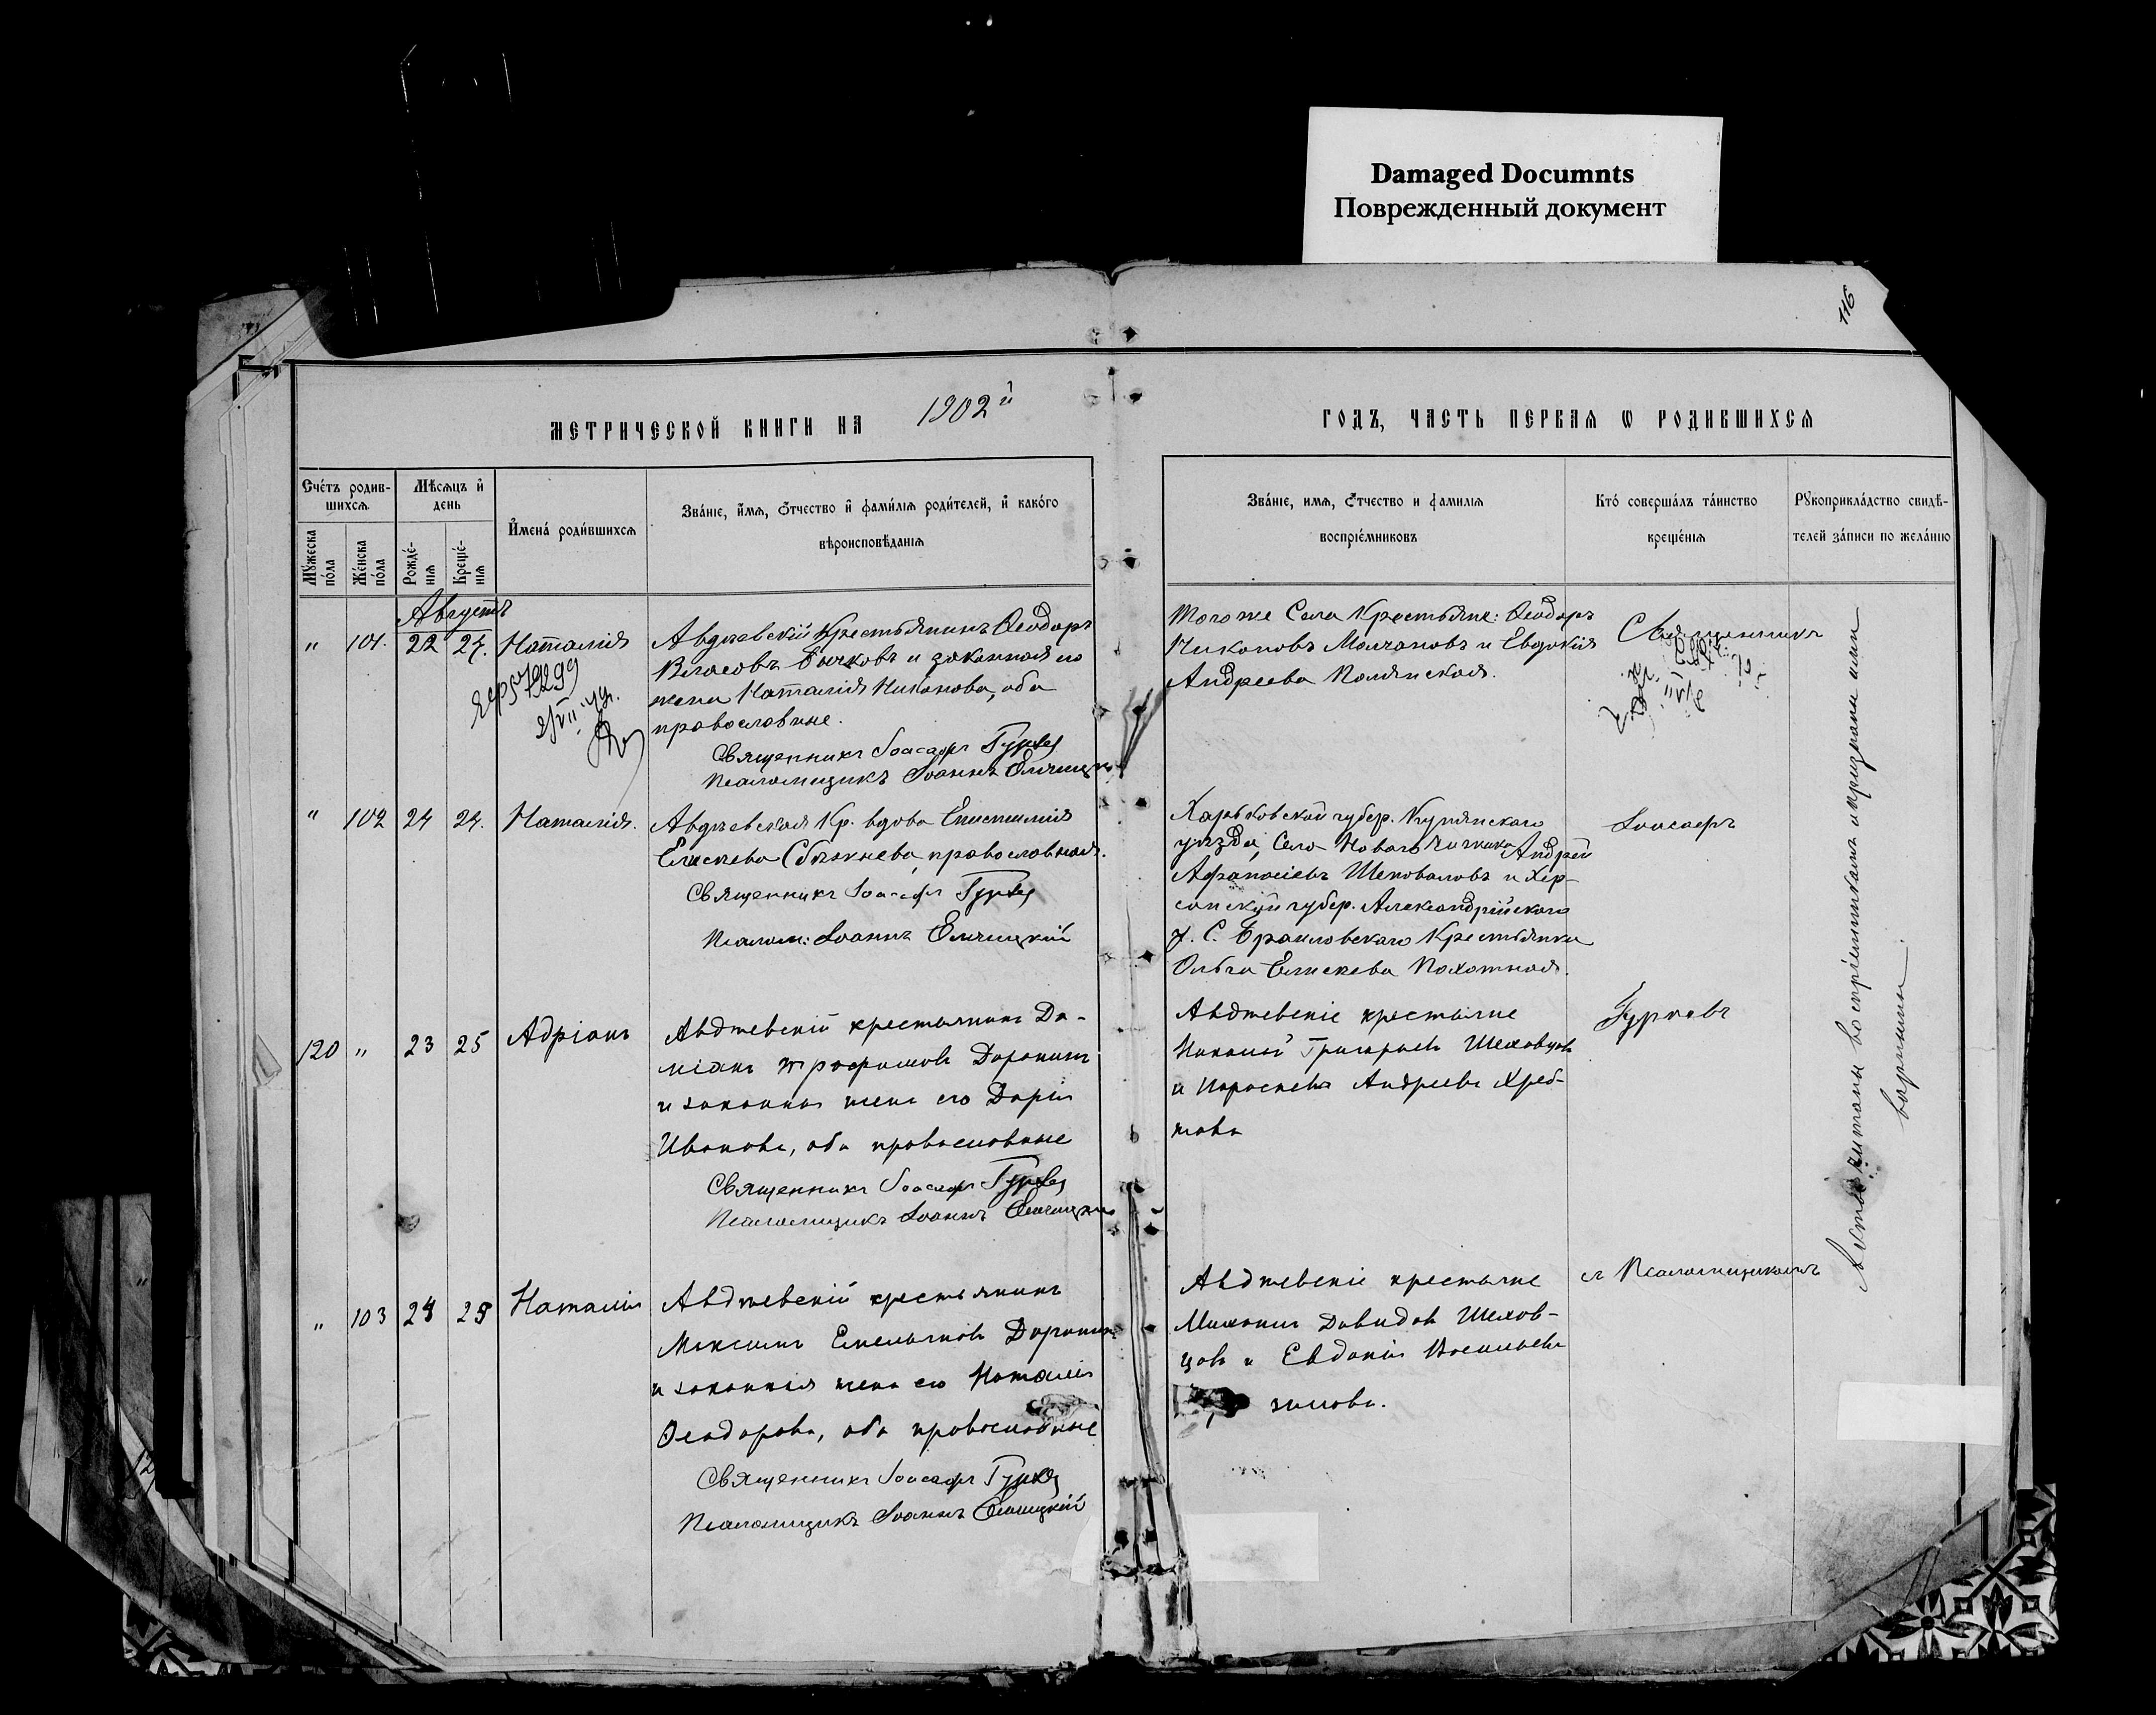 Damaged Documnts
Поврежденный документ
116
МЕТРИЧЕСКОЙ КНИГИ НА 1902й
ГОДЪ, ЧАСТЬ ПЕРВАЯ Ѡ РОДИВШИХСЯ
Счетъ родив-
шихся
Мѣсяцъ и
день
Имена родившихся
Званіе, имя, отчество и фамилія родителей, и какого
вѣроисповѣданія
Мужеска
пола
Женска
пола
Рожде-
нія
Креще-
нія
Званіе, имя, отчество и фамилія
воспріемниковъ
Кто совершалъ таинство
крещенія
Рукоприкладство свидѣ-
телей записи по желанію
Августъ
" 101. 22 24. Наталія
Авдѣевскій Крестьянинъ Ѳеодоръ
Власовъ Бычковъ и законная его
жена Наталія Никонова, оба
православные.
Священникъ Іоасафъ Гурьев
Псаломщикъ Іоаннъ
Того же Села Крестьяне: Ѳеодоръ
Никоновъ Молчановъ и Евдокія
Андреева Полянская.
Священникъ
" 102 24 24. Наталія.
Авдѣевская Кр. вдова Епистимія
Елисеева православная.
Священникъ Іоасафъ Гурьев
Псалом: Іоаннъ
Харьковской губер. Купянскаго
уѣзда, Села Андрей
Афанасіевъ Шеповаловъ и Хер-
сонской губер. Александрійскаго
у. С. Браиловскаго Крестьянка
Ольга Елисеева Похотная.
Іоасафъ
120 " 23 25 Адріанъ
Авдѣевскій крестьянинъ Да-
міанъ Трофимовъ Доронинъ
и законная жена его Дарія
Иванова, оба православные
Священникъ Іоасафъ Гурьев
Псаломщикъ Іоаннъ
Авдѣевскіе крестьяне
Николай Григорьевъ Шеховцовъ
и Параскева Андреева Хреб-
това
Гурьевъ
" 103 24 25 Наталія
Авдѣевскій крестьянинъ
Максимъ Емельяновъ Доронинъ
и законная жена его Наталія
Ѳеодорова, оба православные
Священникъ Іоасафъ Гурьев
Псаломщикъ Іоаннъ
Авдѣевскіе крестьяне
Михаилъ Давидовъ Шехов-
цовъ и Евдокія Васильева
съ Псаломщикомъ
Листъ читаны воспріемникамъ и признаны ими
верными.